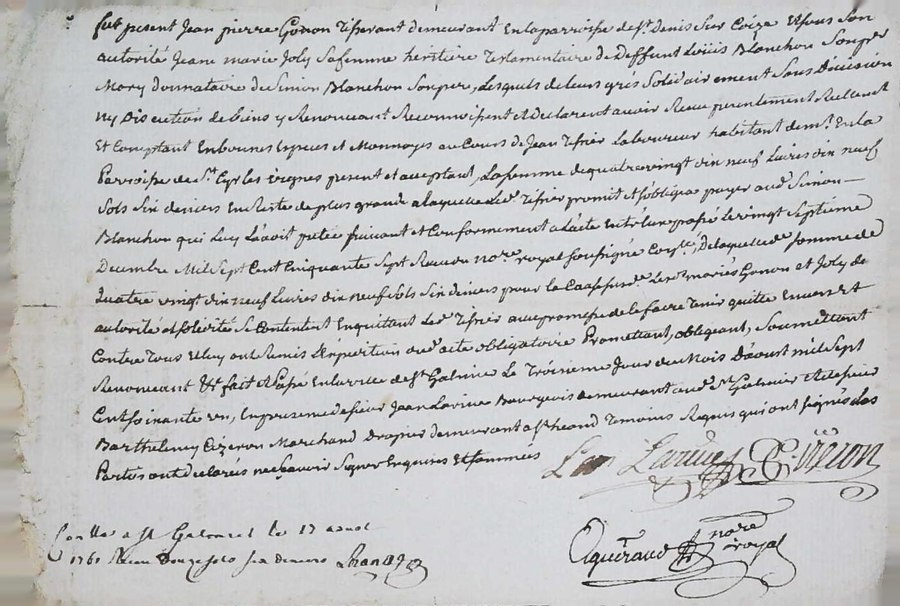 fut present Jean pierre Gonon Tisserant demeurant En la parroisse de St. Denis Sur Coize Et sous Son
autorité Jeane marie Joly Sa femme heritiere Testamentaire de Deffunt Loüis Blanchon Son per
Mary donnataire du Simon Blanchon Son pere, Lesquels de leurs grés Solidairement Sans Division
Ny Discution de biens y Renonceant Reconnoissent et declarent avoir Receu presentement Reellement
Et Comptant En bonnes Especes et Monnoyes au Cours de Jean Tissier Laboureur habitant demt. En la
Parroisse de St. Cyr les vignes present et acceptant, La somme de quatre vingt dix neuf Livres dix neuf
Sols Six deniers En Reste de plus grande a laquelle Led. Tissier promit et s'obligea payer aud. Simon
Blanchon qui Luy L'avoit pretée suivant et Conformement a L'acte Entr'eux passé Le vingt Septieme
Decembre Mil Sept Cent Cinquante Sept Receu du nore. royal soussigné, De laquelle de. somme de
Quatre vingt dix neuf Livres dix neuf Sols Six deniers pour la Cause susde. Led. mariés Gonon et Joly de
autorité et solidité Se Contentent En quittant Led. Tissier avec promesse de le faire tenir quitte Envers Et
Contre Tous Et luy ont Remis L'Expedition dud. acte obligatoire Promettant, obligeant, Soumettant
Renonceant &c. fait et Passé En la ville de St. Galmier Le Troisieme Jour du Mois D'aoust mil Sept
Cent soixante un, En presence de sieur Jean Bourgeois demeurant aud. St. Galmier et de sieur
Barthelemy Marchand Drapier demeurant a St. heand Temoins Requis qui ont signés Les
Parties ont declarés ne sçavoir Signer Enquises Et sommées
nore
royal
Conllé a St Galmier le 17 aoust
1761 Receu Douze sols Six deniers